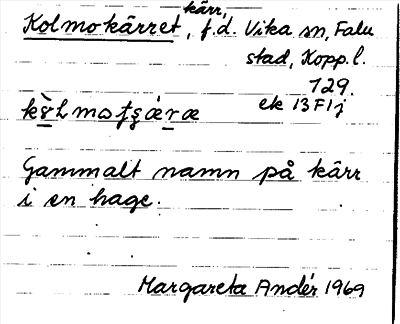 kärr,
Kolmokärret, f.d. Vika sn, Falu
stad, Kopp. l.
129.
ek 13 F 1 j
Gammalt namn på kärr
i en hage.
Margareta Andér 1969